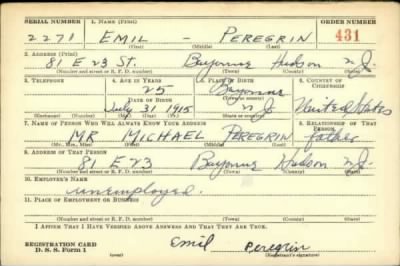 SERIAL NUMBER 1. NAME (Print) ORDER NUMBER
2271 EMIL - PEREGRIN 431
(First) (Middle) (Last)
2. ADDRESS (Print)
81 E 23 ST. Bayonne Hudson N.J.
(Number and street or R. F. D. number) (Town) (County) (State)
3. TELEPHONE 4. AGE IN YEARS 5. PLACE OF BIRTH 6. COUNTRY OF CITIZENSHIP
25 Bayonne
DATE OF BIRTH (Town or county)
July 31 1915 N.J. United States
(Exchange) (Number) (Mo.) (Day) (Yr.) (State or country)
7. NAME OF PERSON WHO WILL ALWAYS KNOW YOUR ADDRESS 8. RELATIONSHIP OF THAT PERSON
MR MICHAEL PEREGRIN father
(Mr., Mrs., Miss) (First) (Middle) (Last)
9. ADDRESS OF THAT PERSON
81 E 23 Bayonne Hudson N.J.
(Number and street or R. F. D. number) (Town) (County) (State)
10. EMPLOYER'S NAME
unemployed.
11. PLACE OF EMPLOYMENT OR BUSINESS
(Number and street or R. F. D. number) (Town) (County) (State)
I AFFIRM THAT I HAVE VERIFIED ABOVE ANSWERS AND THAT THEY ARE TRUE.
REGISTRATION CARD
D. S. S. Form 1 Emil Peregrin
(Registrant's signature)